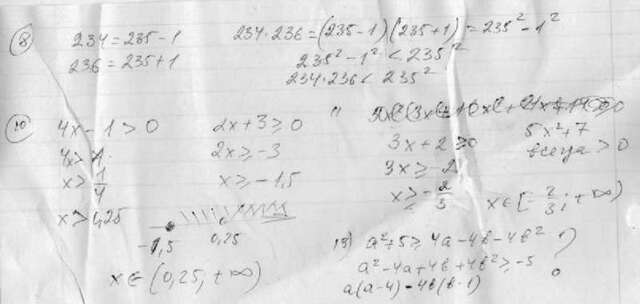 8) 234 = 235 - 1
236 = 235 + 1
234·236 = (235-1)(235+1) = 235² - 1²
235² - 1² < 235²
234·236 < 235²
10) 4x - 1 > 0
4x > 1
x > 1/4
x > 0,25
2x + 3 ≥ 0
2x ≥ -3
x ≥ -1,5
-1,5 0,25
x ∈ (0,25, +∞)
3x + 2 ≥ 0
3x ≥ -2
x ≥ -2/3
5x² + 7
всегда > 0
x ∈ [-2/3; +∞)
13) a² + 5 ≥ 4a - 4b - 4b² ?
a² - 4a + 4b + 4b² ≥ -5
a(a-4) - 4b(b-1)